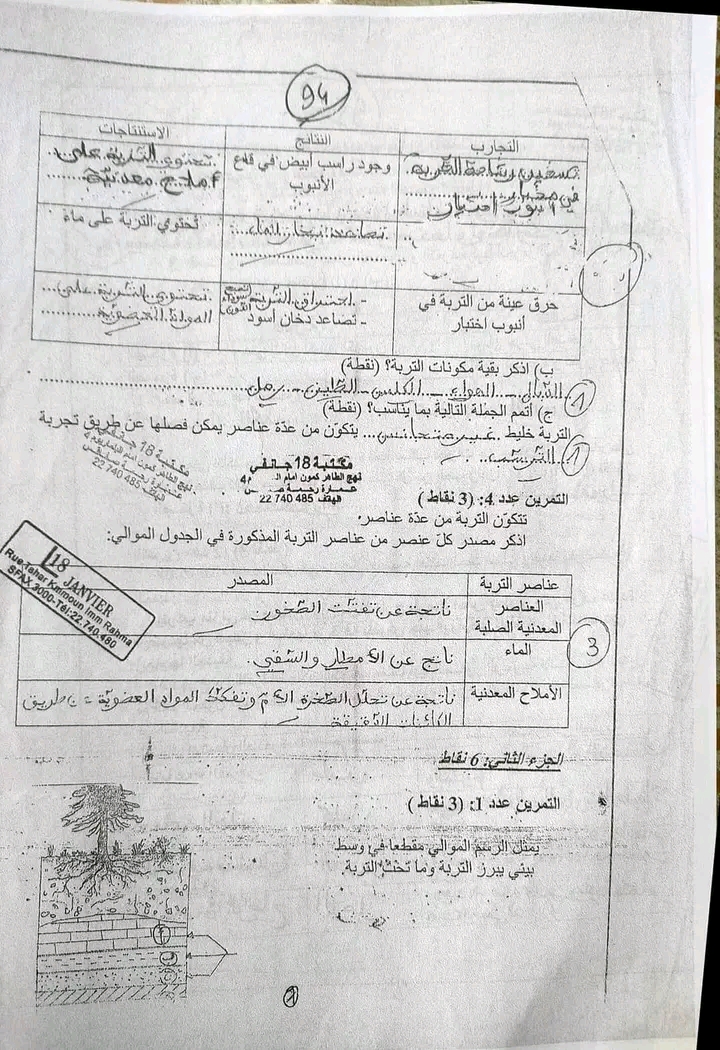 94
التجارب النتائج الاستنتاجات
تسخين رشاحة التربة وجود راسب أبيض في قاع تحتوي التربة على
في أنبوب اختبار الأنبوب أملاح معدنية
تصاعد بخار الماء تحتوي التربة على ماء
حرق عينة من التربة في - احتراق التربة تحتوي التربة على
أنبوب اختبار - تصاعد دخان أسود المواد العضوية
ب) اذكر بقية مكونات التربة؟ (نقطة)
الدبال - الهواء - الكلس - الطين - رمل
1
ج) أتمم الجملة التالية بما يناسب؟ (نقطة)
التربة خليط غير متجانس يتكون من عدّة عناصر يمكن فصلها عن طريق تجربة
الترسب
1
مكتبة 18 جانفي
نهج الطاهر كمون امام
عمارة رحمة صفاقس
الهاتف 485 740 22
مكتبة 18 جانفي
نهج الطاهر كمون امام
عمارة رحمة صفاقس
الهاتف 485 740 22
التمرين عدد 4: (3 نقاط)
تتكوّن التربة من عدّة عناصر.
اذكر مصدر كلّ عنصر من عناصر التربة المذكورة في الجدول الموالي:
18 JANVIER
Rue Tahar Kammoun Imm Rahma
SFAX 3000-Tél:22.740.480
عناصر التربة المصدر
العناصر المعدنية الصلبة ناتجة عن تفتت الصخور
الماء ناتج عن الأمطار والسقي.
الأملاح المعدنية ناتجة عن تحلل الصخرة الأم وتفكك المواد العضوية عن طريق
الكائنات الدقيقة
3
الجزء الثاني: 6 نقاط
التمرين عدد 1: (3 نقاط)
يمثل الرسم الموالي مقطعا في وسط
بيئي يبرز التربة وما تحت التربة.
أ
ب